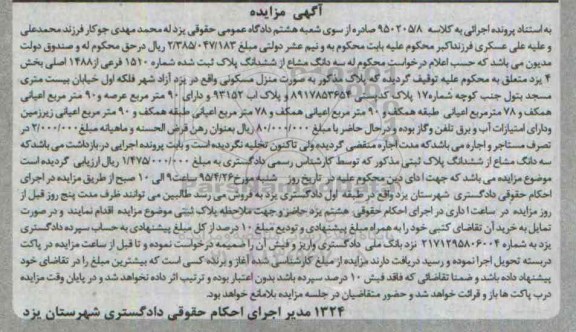 آگهی مزایده
به استناد پرونده اجرائی به کلاسه ۹۵۰۲۰۵/۸ صادره از سوی شعبه هشتم دادگاه عمومی حقوقی یزد له محمد مهدی جوکار فرزند محمدعلی
و علیه علی عسکری فرزند اکبر محکوم علیه بابت محکوم به و نیم عشر دولتی مبلغ ۲/۳۸۵/۰۴۷/۱۸۳ ریال در حق محکوم له و صندوق دولت
مدیون می باشد که حسب اعلام درخواست محکوم له سه دانگ مشاع از ششدانگ پلاک ثبت شده شماره ۱۵۱۰ فرعی از ۱۴۸۸ اصلی بخش
۴ یزد متعلق به محکوم علیه توقیف گردید که پلاک مذکور به صورت منزل مسکونی واقع در یزد آزاد شهر فلکه اول خیابان بیست متری
مسجد بتول جنب کوچه شماره ۱۷ پلاک کدپستی ۸۹۱۷۸۵۳۶۵۴ و پلاک اب ۹۳۱۵۲ و دارای ۹۰ متر مربع عرصه و ۹۰ متر مربع اعیانی
همکف و ۷۸ متر مربع اعیانی طبقه همکف و ۹۰ متر مربع اعیانی همکف و ۷۸ متر مربع اعیانی طبقه همکف و ۹۰ متر مربع اعیانی زیرزمین
ودارای امتیازات آب و برق تلفن و گاز بوده و در حال حاضر با مبلغ ۸۰/۰۰۰/۰۰۰ ریال بعنوان رهن قرض الحسنه و ماهیانه مبلغ ۲/۰۰۰/۰۰۰ در
تصرف مستاجر و اجاره می باشد که مدت اجاره منقضی گردیده ولی تاکنون تخلیه نگردیده است و بابت پرونده اجرایی در بازداشت می باشد که
سه دانگ مشاع از ششدانگ پلاک ثبتی مذکور که توسط کارشناس رسمی دادگستری به مبلغ ۱/۴۷۵/۰۰۰/۰۰۰ ریال ارزیابی گردیده است
موضوع مزایده می باشد که جهت ادای دین محکوم علیه در تاریخ روز شنبه مورخ ۹۵/۴/۲۶ ساعت ۹ الی ۱۰ صبح از طریق مزایده در اجرای
احکام حقوقی دادگستری شهرستان یزد واقع در طبقه اول دادگستری یزد به فروش می رسد طالبین می توانند ظرف مدت پنج روز قبل از
روز مزایده در ساعت اداری در اجرای احکام حقوقی هشتم یزد حاضر و جهت ملاحظه پلاک ثبتی موضوع مزایده اقدام نمایند و در صورت
تمایل به خرید آن تقاضای کتبی خود را به همراه مبلغ پیشنهادی و تودیع مبلغ ۱۰ درصد از کل مبلغ پیشنهادی به حساب سپرده دادگستری
یزد به شماره ۲۱۷۱۲۹۵۸۰۶۰۰۴ نزد بانک ملی دادگستری واریز و فیش آن را ضمیمه درخواست نموده و تا قبل از ساعت مزایده در پاکت
دربسته تحویل اجرا نموده و رسید دریافت دارند مزایده از مبلغ کارشناسی شده آغاز و برنده کسی است که بیشترین مبلغ را در تقاضای خود
پیشنهاد داده باشد و ضمنا تقاضائی که فاقد فیش ۱۰ درصد سپرده باشد بدون اعتبار بوده و ترتیب اثر داده نخواهد شد و در پایان وقت مزایده
درب پاکت ها باز و قرائت خواهد شد و حضور متقاضیان در جلسه مزایده بلامانع خواهد بود.
۱۳۲۴ مدیر اجرای احکام حقوقی دادگستری شهرستان یزد